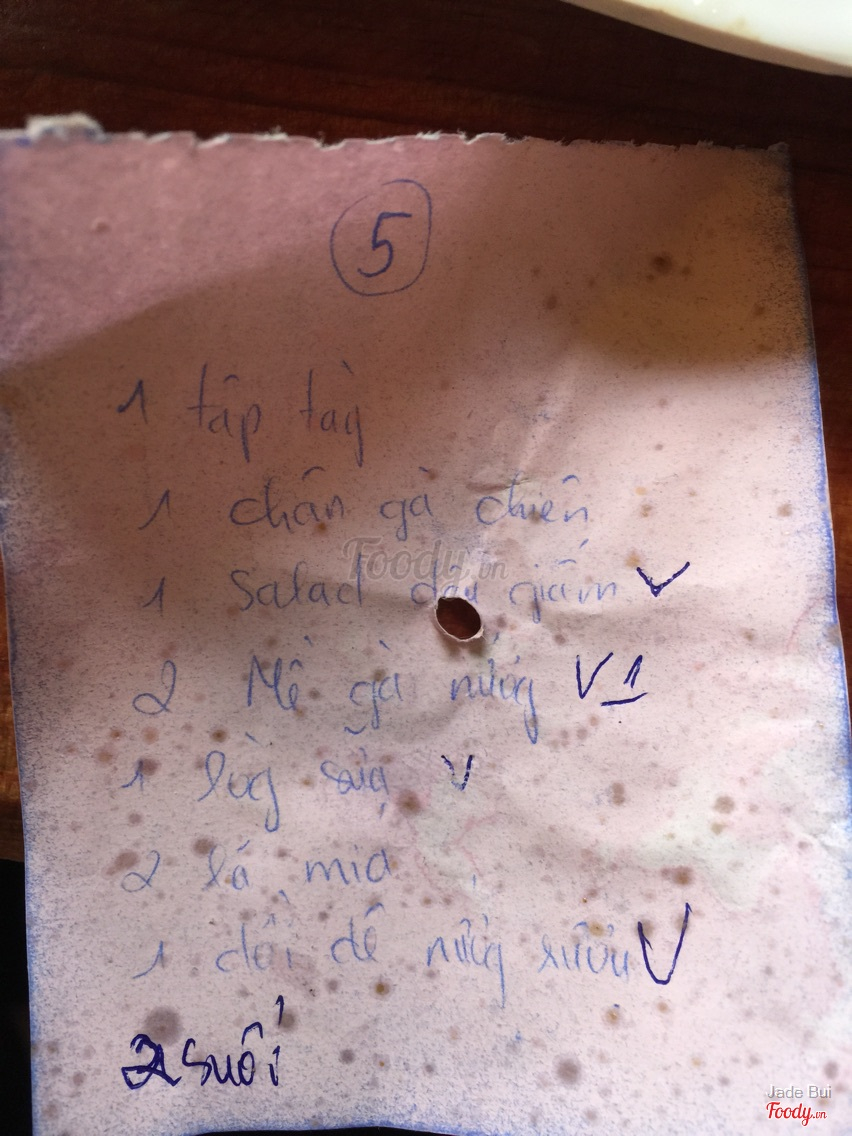 5
1 tập tàng
1 chân gà chiên
Foody.vn
1 Salad dầu giấm V
2 Mề gà nướng V1
1 lòng sữa V
2 lá mía
1 dồi dê nướng V
2 suối
Jade Bui
Foody.vn